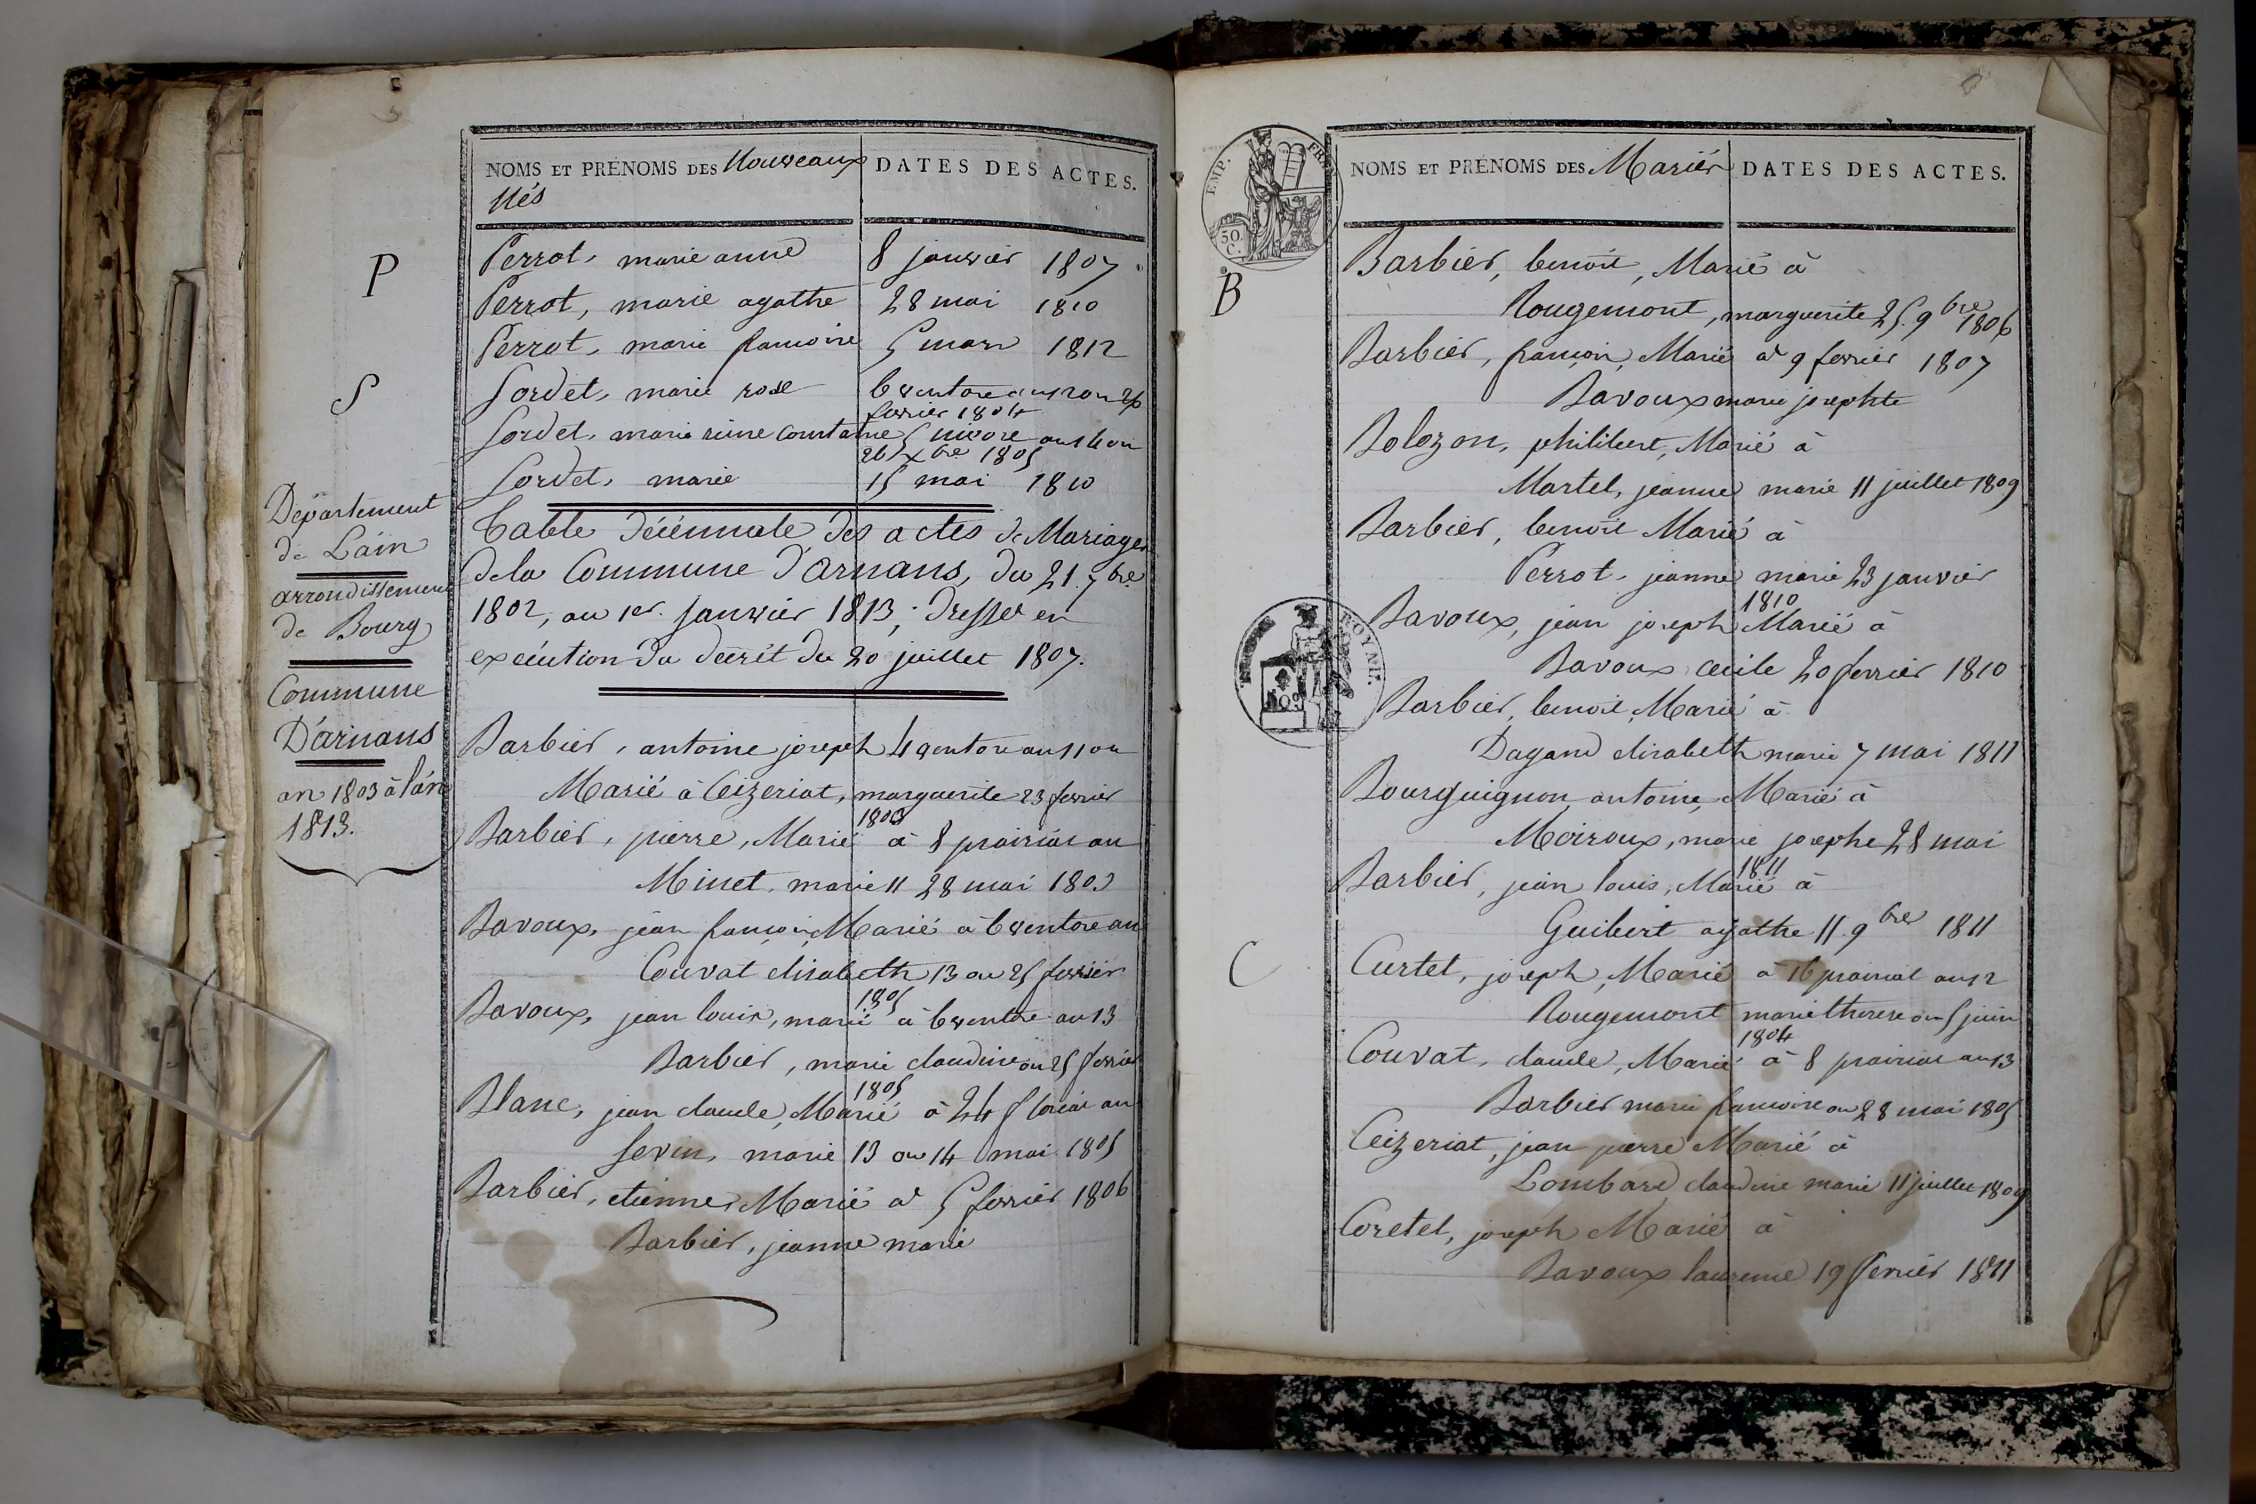 NOMS ET PRÉNOMS DES Nouveaux Nés
DATES DES ACTES.
P
Perrot, marie anne 8 janvier 1807
Perrot, marie agathe 28 mai 1810
Perrot, marie francoise 5 mars 1812
S
Sordet, marie rose 6 ventose an 12 ou 26
fevrier 1804
Sordet, marie reine constance 5 nivose an 14 ou
26 Xbre 1805
Sordet, marie 15 mai 1810
Département
de L'ain
arrondissement
de Bourg
Commune
D'arnans
an 1803 à l'an
1813.
Table décénnale des actes de Mariages
de la Commune d'Arnans, du 21. 7bre
1802, au 1er. Janvier 1813; dressée en
exécution du décrét du 20 juillet 1807.
Barbier, antoine joseph 4 ventose an 11 ou
Marié à Ceizeriat, marguerite 23 fevrier
1803
Barbier, pierre, Marié à 8 prairial an
Minet, marie 11 28 mai 1803
Bavoux, jean françois, Marié à 6 ventose an
Couvat elisabeth 13 ou 25 fevrier
1805
Bavoux, jean louis, marié à 6 ventose an 13
Barbier, marie claudine ou 25 fevrier
1805
Blanc, jean claude, Marié à 24 floréal an
Sevin, marie 13 ou 14 mai 1805
Barbier, etienne Marié à 5 fevrier 1806
Barbier, jeanne marie
NOMS ET PRÉNOMS DES Mariés
DATES DES ACTES.
EMP. FRA
50
C.
ROYAL
B
Barbier, benoit, Marié à
Rougemont, marguerite 25. 9bre
1806
Barbier, françois, Marié à 9 fevrier 1807
Bavoux marie josephte
Bolozon, philibert, Marié à
Martel, jeanne marie 11 juillet 1809
Barbier, benoit Marié à
Perrot, jeanne marie 23 janvier
1810
Bavoux, jean joseph Marié à
Bavoux cecile 20 fevrier 1810
Barbier, benoit, Marié à
Dagand elisabeth marie 7 mai 1811
Bourguignon antoine, Marié à
Moiroux, marie josephe 28 mai
1811
Barbier, jean louis, Marié à
Guibert agathe 11. 9bre 1811
C
Curtet, joseph, Marié à 16 prairial an 12
Rougemont marie therese ou 5 juin
1804
Couvat, claude, Marié à 8 prairial an 13
Barbier marie francoise ou 28 mai 1805
Ceizeriat, jean pierre Marié à
Lombard claudine marie 11 juillet 1809
Coretet, joseph Marié à
Bavoux laurence 19 fevrier 1811